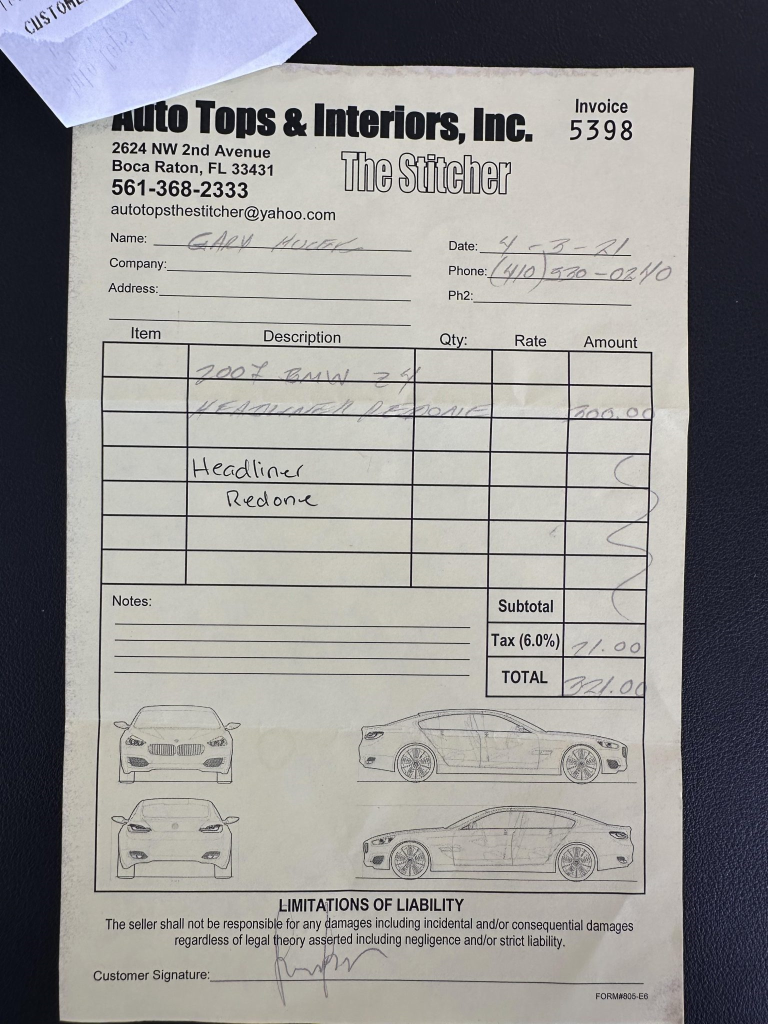 CUSTOME
Auto Tops & Interiors, Inc.
Invoice
5398
2624 NW 2nd Avenue
Boca Raton, FL 33431
561-368-2333
The Stitcher
autotopsthestitcher@yahoo.com
Name: GARY
Date: 4-3-21
Company:
Phone: (410) 530-0240
Address:
Ph2:
Item Description Qty: Rate Amount
2007 BMW Z4
HEADLINER REDONE 300.00
Headliner
Redone
Notes:
Subtotal
Tax (6.0%) 21.00
TOTAL 321.00
LIMITATIONS OF LIABILITY
The seller shall not be responsible for any damages including incidental and/or consequential damages
regardless of legal theory asserted including negligence and/or strict liability.
Customer Signature:
FORM#805-E6